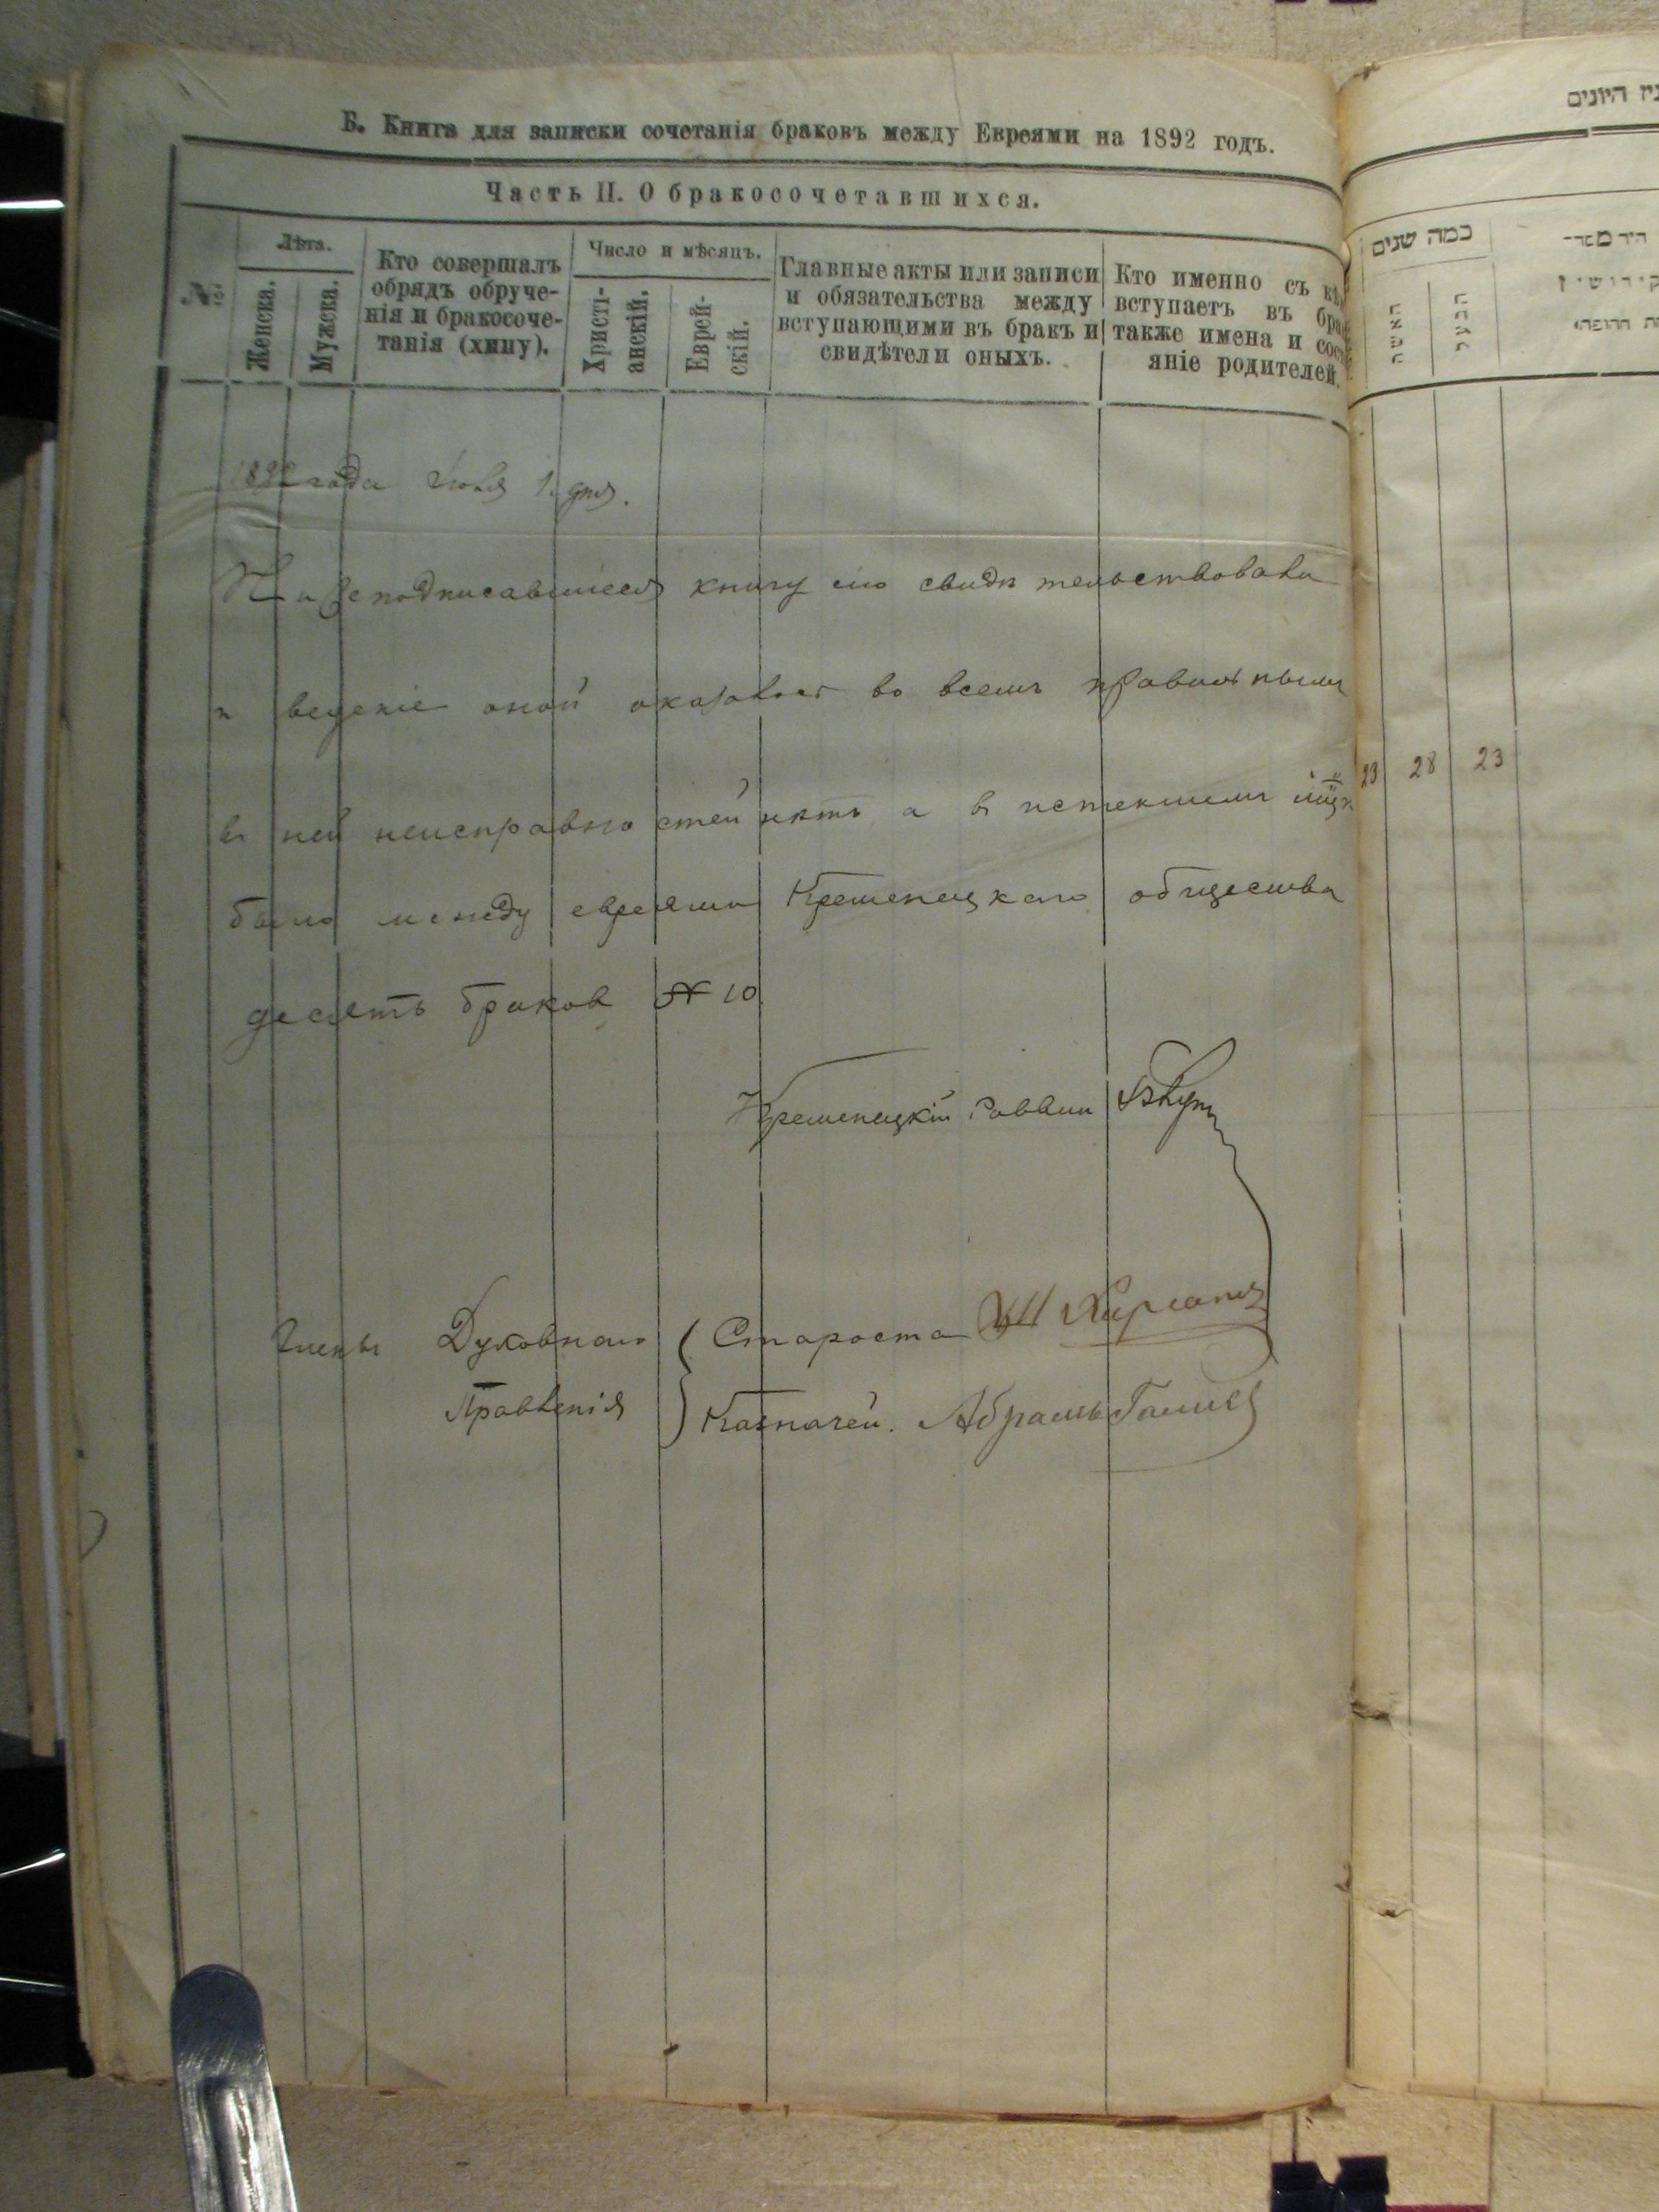 Б. Книга для записки сочетанія браковъ между Евреями на 1892 годъ.
Часть II. О бракосочетавшихся.
№
Лѣта.
Женска.
Мужска.
Кто совершалъ
обрядъ обруче-
нія и бракосоче-
танія (хипу).
Число и мѣсяцъ.
Христі-
анскій.
Еврей-
скій.
Главные акты или записи
и обязательства между
вступающими въ бракъ и
свидѣтели оныхъ.
Кто именно съ
вступаетъ въ бра
также имена и сос
яніе родителей.
1892 года 1 дня.
Нижеподписавшіеся книгу сію свидѣтельствовали
и веденіе оной оказалось во всемъ правильнымъ
въ ней неисправностей нѣтъ а въ истекшемъ
было между евреями Кременецкаго общества
десять браков № 10
Кременецкій Раввин
Члены Духовнаго
Правленія
Староста
Казначей. Абрамъ
היונים
כמה שנים
האשה
הבעל
23 28 23